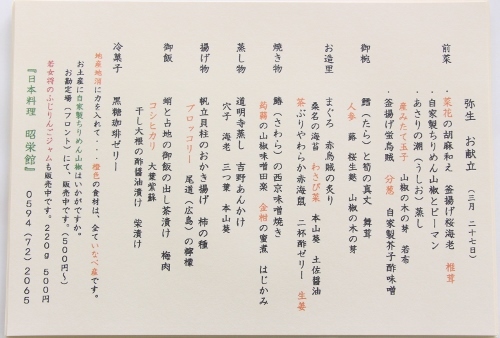 弥生　お献立
（三月　二十七日）
前菜　・菜花の胡麻和え　釜揚げ桜海老　椎茸
・自家製ちりめん山椒とピーマン
・あさりの潮（うしお）蒸し
・産みたて玉子　山椒の木の芽　若布
・釜揚げ蛍烏賊　分葱　自家製芥子酢味噌
御椀　鱈（たら）と筍の真丈　舞茸
人参　蕗　桜生麩　山椒の木の芽
お造里　まぐろ　赤烏賊の炙り
桑名の海苔　わさび菜　本山葵　土佐醤油
茶ぶりやわらか赤海鼠　二杯酢ゼリー　生姜
焼き物　鰆（さわら）の西京味噌焼き
蒟蒻の山椒味噌田楽　金柑の蜜煮　はじかみ
蒸し物　道明寺蒸し　吉野あんかけ
穴子　海老　三つ葉　本山葵
揚げ物　帆立貝柱のおかき揚げ　柿の種
ブロッコリー　尾道（広島）の檸檬
御飯　蛸と占地の御飯の出し茶漬け　梅肉
コシヒカリ　大葉紫蘇
干し大根の酢醤油漬け　柴漬け
冷菓子　黒糖珈琲ゼリー
地産地消に力を入れて・・橙色の食材は、全ていなべ産です。
お土産に自家製ちりめん山椒はいかがですか。
お勘定場（フロント）にて、販売中です。（５００円〜）
若女将のふじりんごジャムも販売中です。２２０ｇ　５００円
『日本料理　昭栄館』　０５９４（７２）２０６５